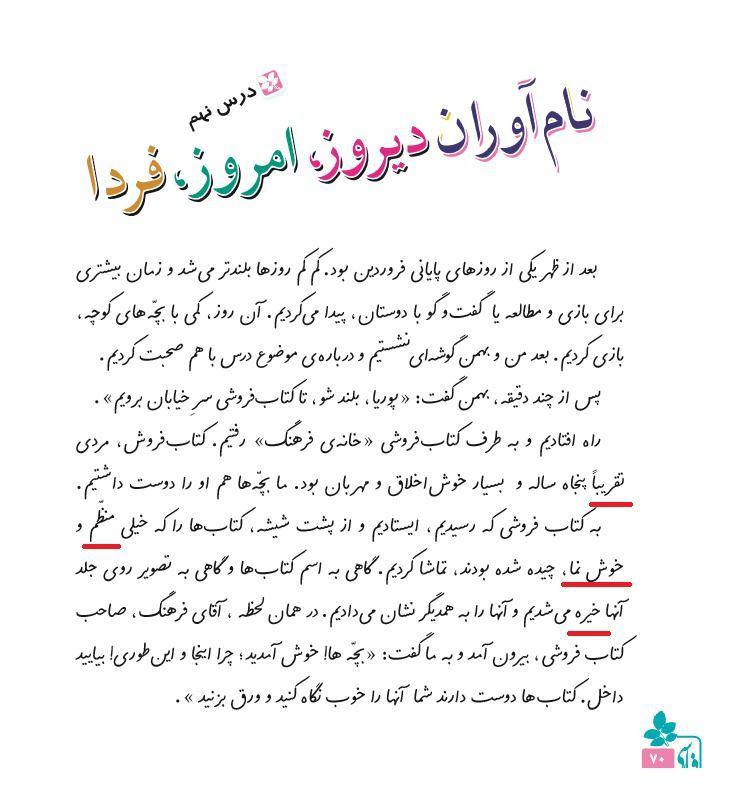 درس نهم
نام‌آوران دیروز، امروز، فردا
بعد از ظهر یکی از روزهای پایانی فروردین بود. کم کم روزها بلندتر می‌شد و زمان بیشتری
برای بازی و مطالعه یا گفت‌و‌گو با دوستان، پیدا می‌کردیم. آن روز، کمی با بچّه‌های کوچه،
بازی کردیم. بعد من و بهمن گوشه‌ای نشستیم و درباره‌ی موضوع درس با هم صحبت کردیم.
پس از چند دقیقه، بهمن گفت: «پوریا، بلند شو، تا کتاب‌فروشی سرِ خیابان برویم».
راه افتادیم و به طرف کتاب‌فروشی «خانه‌ی فرهنگ» رفتیم. کتاب‌فروش، مردی
تقریباً پنجاه ساله و بسیار خوش‌اخلاق و مهربان بود. ما بچّه‌ها هم او را دوست داشتیم.
به کتاب فروشی که رسیدیم، ایستادیم و از پشت شیشه، کتاب‌ها را که خیلی منظّم و
خوش نما، چیده شده بودند، تماشا کردیم. گاهی به اسم کتاب‌ها و گاهی به تصویر روی جلد
آنها خیره می‌شدیم و آنها را به همدیگر نشان می‌دادیم. در همان لحظه ، آقای فرهنگ، صاحب
کتاب فروشی، بیرون آمد و به ما گفت: «بچّه ها! خوش آمدید؛ چرا اینجا و این‌طوری! بیایید
داخل. کتاب‌ها دوست دارند شما آنها را خوب نگاه کنید و ورق بزنید ».
۷۰